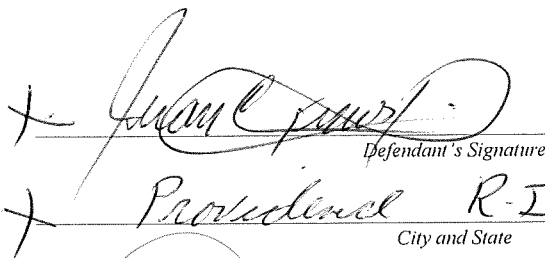 X Juan C
Defendant's Signature
X Providence R-I
City and State